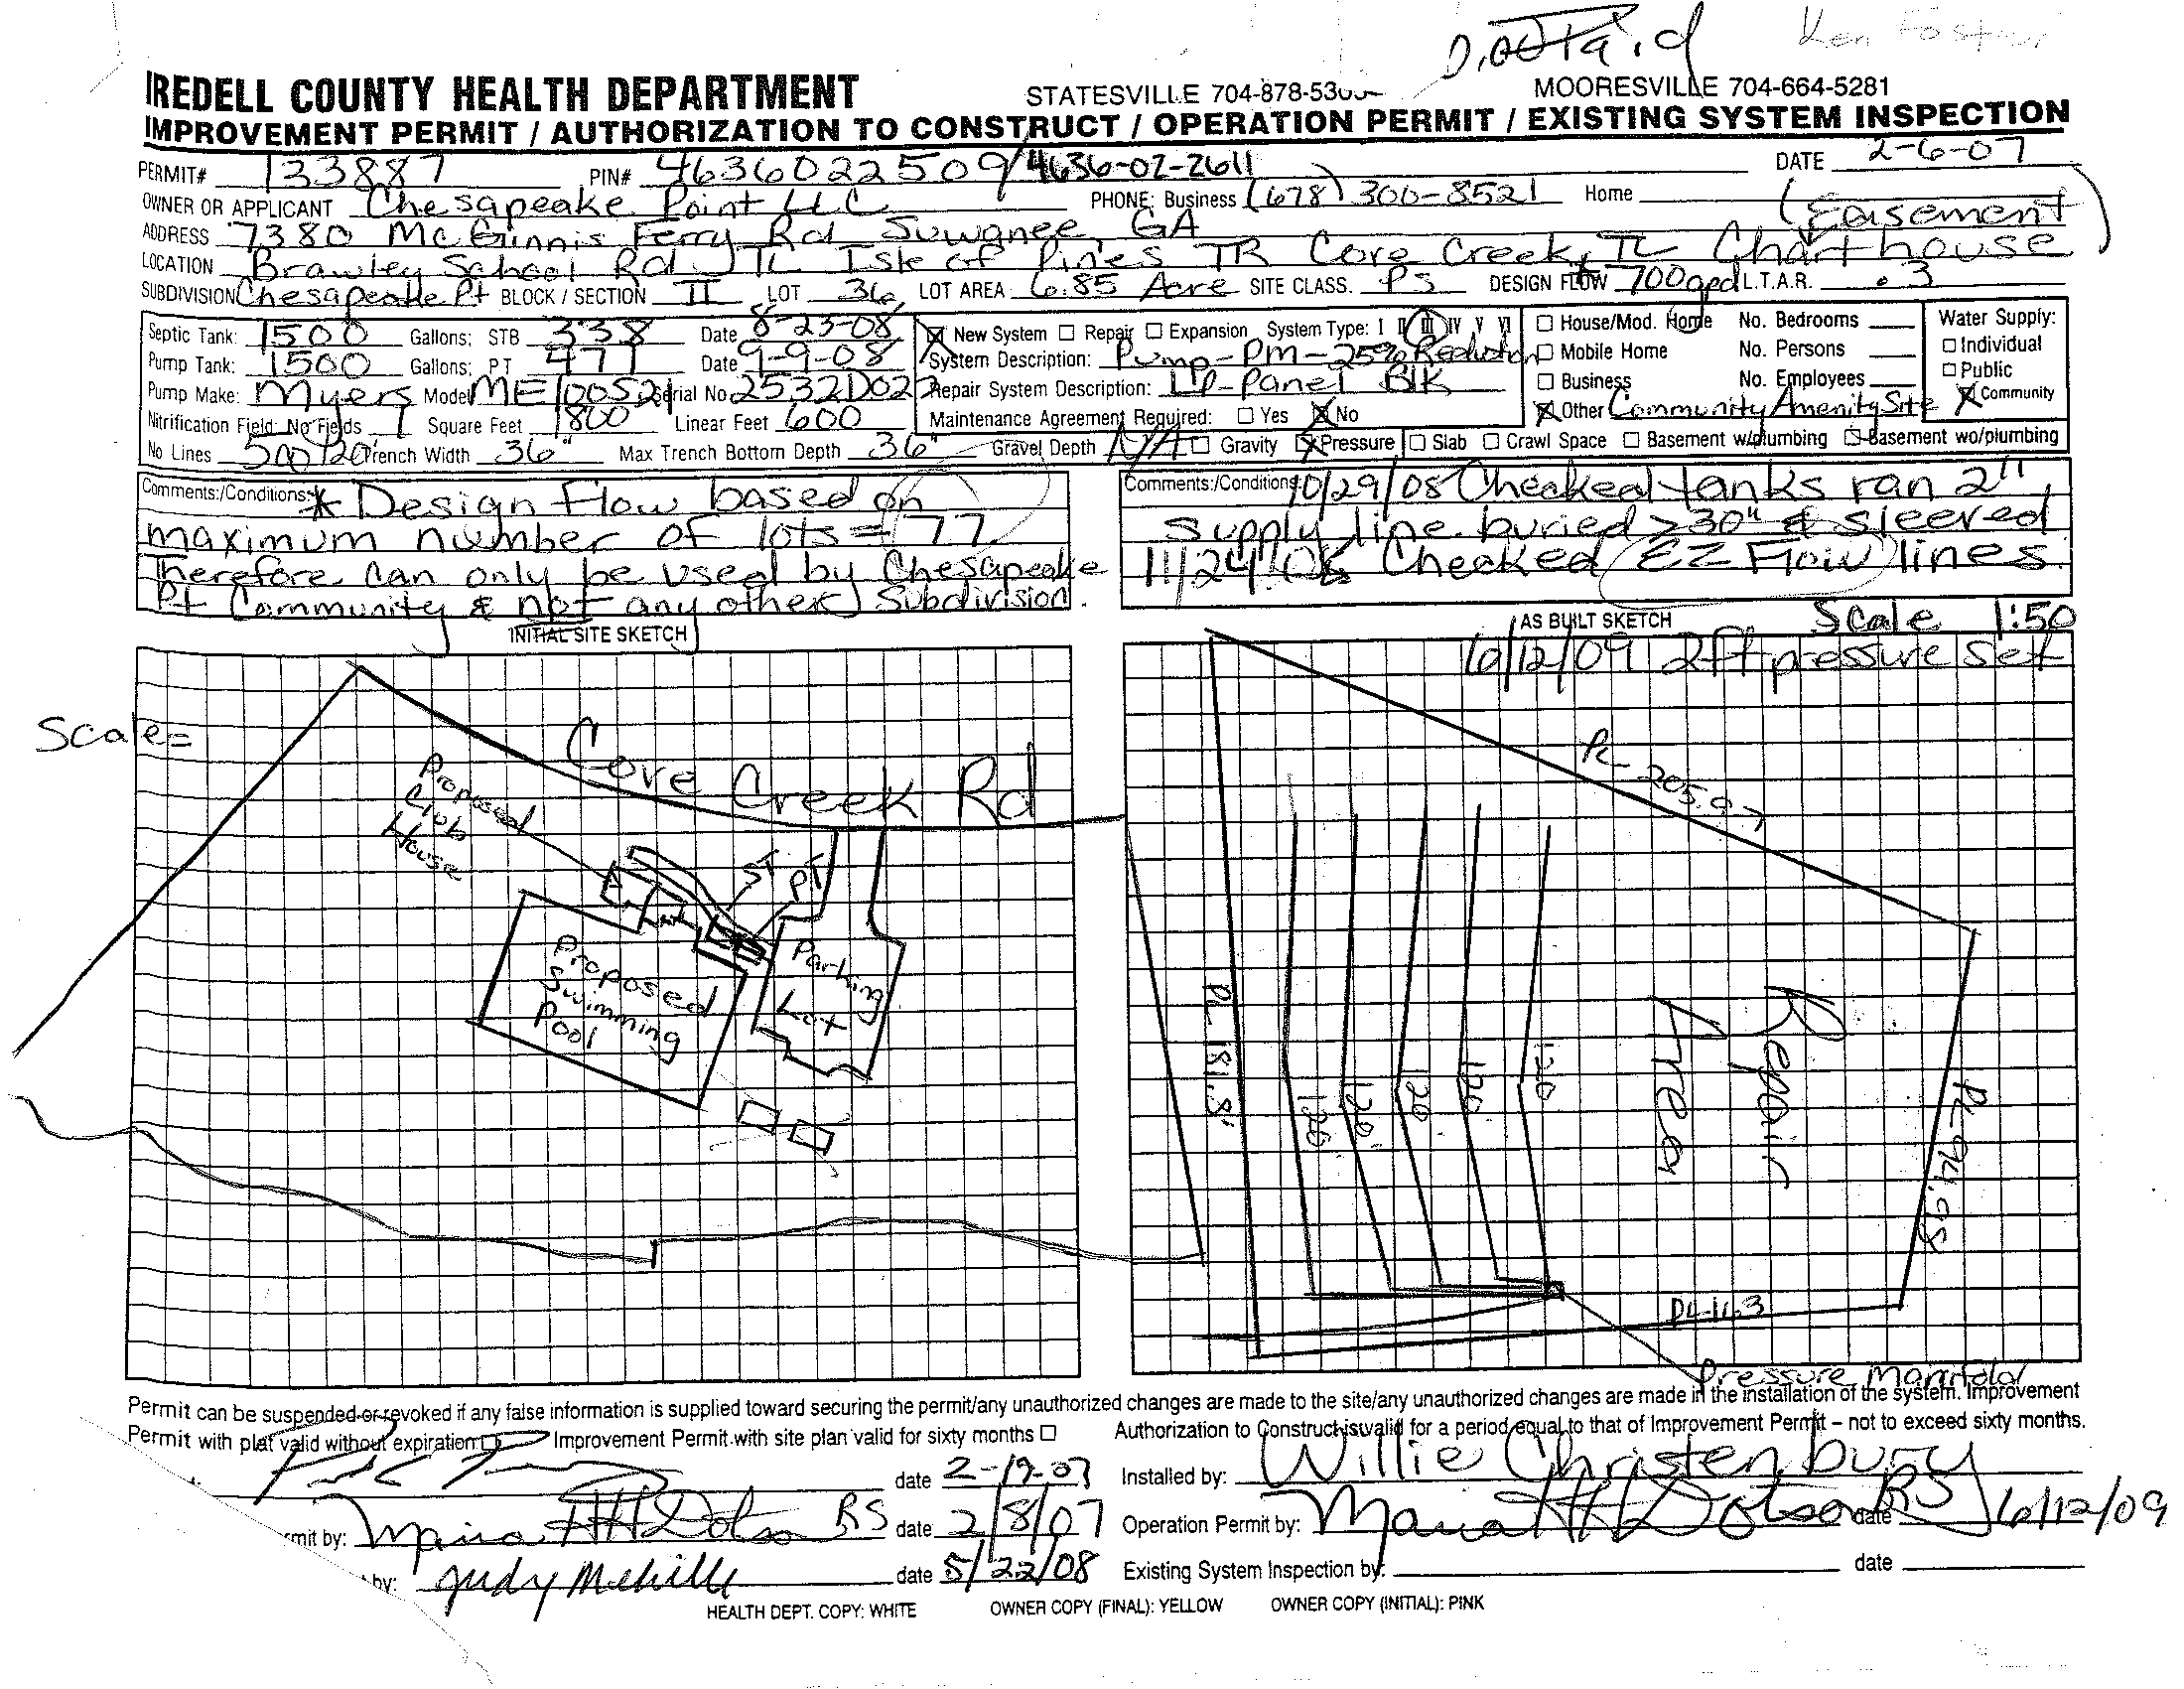 Ken Foster
IREDELL COUNTY HEALTH DEPARTMENT STATESVILLE 704-878-53 MOORESVILLE 704-664-5281
IMPROVEMENT PERMIT / AUTHORIZATION TO CONSTRUCT / OPERATION PERMIT / EXISTING SYSTEM INSPECTION
PERMIT# 133887 PIN# 4636022509/4636-02-2611 DATE 2-6-07
OWNER OR APPLICANT Chesapeake Point LLC PHONE: Business (678) 300-8521 Home (Easement)
ADDRESS 7380 McGinnis Ferry Rd Suwanee, GA
LOCATION Brawley School Rd TL Isle of Pines TR Cove Creek, TL Charthouse
SUBDIVISION Chesapeake Pt BLOCK / SECTION II LOT 36 LOT AREA 6.85 Acre SITE CLASS. PS DESIGN FLOW *700gpd L.T.A.R. .3
Septic Tank: 1500 Gallons: STB 338 Date 8-23-08
Pump Tank: 1500 Gallons: PT 477 Date 9-9-08
Pump Make: Myers Model ME100S21 Serial No. 2532D027
Nitrification Field: No Fields 1 Square Feet 1800 Linear Feet 600
No Lines 5@120' Trench Width 36" Max Trench Bottom Depth 36" Gravel Depth N/A ☐ Gravity ☒ Pressure
☒ New System ☐ Repair ☐ Expansion System Type: I II III IV V VI
System Description: Pump-PM-25% Reduction
Repair System Description: LP-Panel Blk
Maintenance Agreement Required: ☐ Yes ☒ No
☐ House/Mod. Home No. Bedrooms
☐ Mobile Home No. Persons
☐ Business No. Employees
☒ Other Community Amenity Site
☐ Slab ☐ Crawl Space ☐ Basement w/plumbing ☐ Basement wo/plumbing
Water Supply:
☐ Individual
☐ Public
☒ Community
Comments:/Conditions: * Design Flow based on
maximum number of lots = 77.
Therefore can only be used by Chesapeake
Pt Community & not any other Subdivision.
Comments:/Conditions: 10/29/08 Checked tanks ran 2"
supply line buried >30" & sleeved
11/24/08 Checked EZ Flow lines.
INITIAL SITE SKETCH
Scale=
Cove Creek Rd
Proposed
Club
House
ST
PT
Proposed
Swimming
Pool
Parking
Lot
AS BUILT SKETCH Scale 1:50
6/12/09 2ft pressure set
PL 205.97
PL 181.8'
120
120
120
120
120
Repair
Area
PL 94.98
PL 116.3
Pressure Manifold
Permit can be suspended or revoked if any false information is supplied toward securing the permit/any unauthorized changes are made to the site/any unauthorized changes are made in the installation of the system. Improvement
Permit with plat valid without expiration ☐ Improvement Permit with site plan valid for sixty months ☐ Authorization to Construct is valid for a period equal to that of Improvement Permit – not to exceed sixty months.
date 2-19-07 Installed by: Willie Christenbury
rmit by: Maria Dotson RS date 2/8/07 Operation Permit by: Maria Dotson RS date 6/12/09
by: Judy Melville date 5/22/08 Existing System Inspection by: date
HEALTH DEPT. COPY: WHITE OWNER COPY (FINAL): YELLOW OWNER COPY (INITIAL): PINK